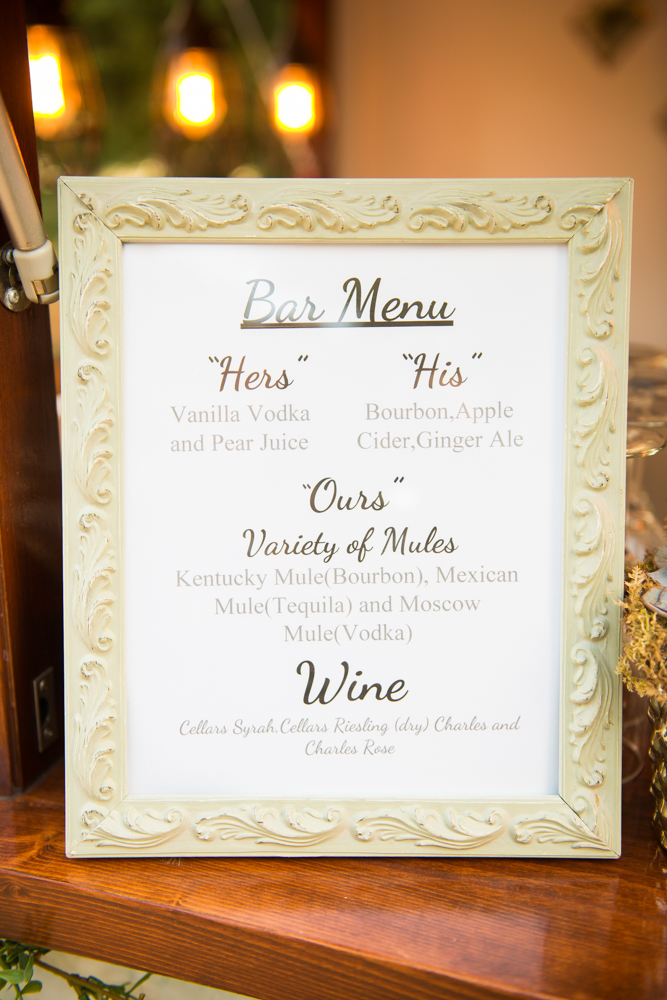 Bar Menu
"Hers" "His"
Vanilla Vodka
and Pear Juice
Bourbon,Apple
Cider,Ginger Ale
"Ours"
Variety of Mules
Kentucky Mule(Bourbon), Mexican
Mule(Tequila) and Moscow
Mule(Vodka)
Wine
Cellars Syrah,Cellars Riesling (dry) Charles and
Charles Rose